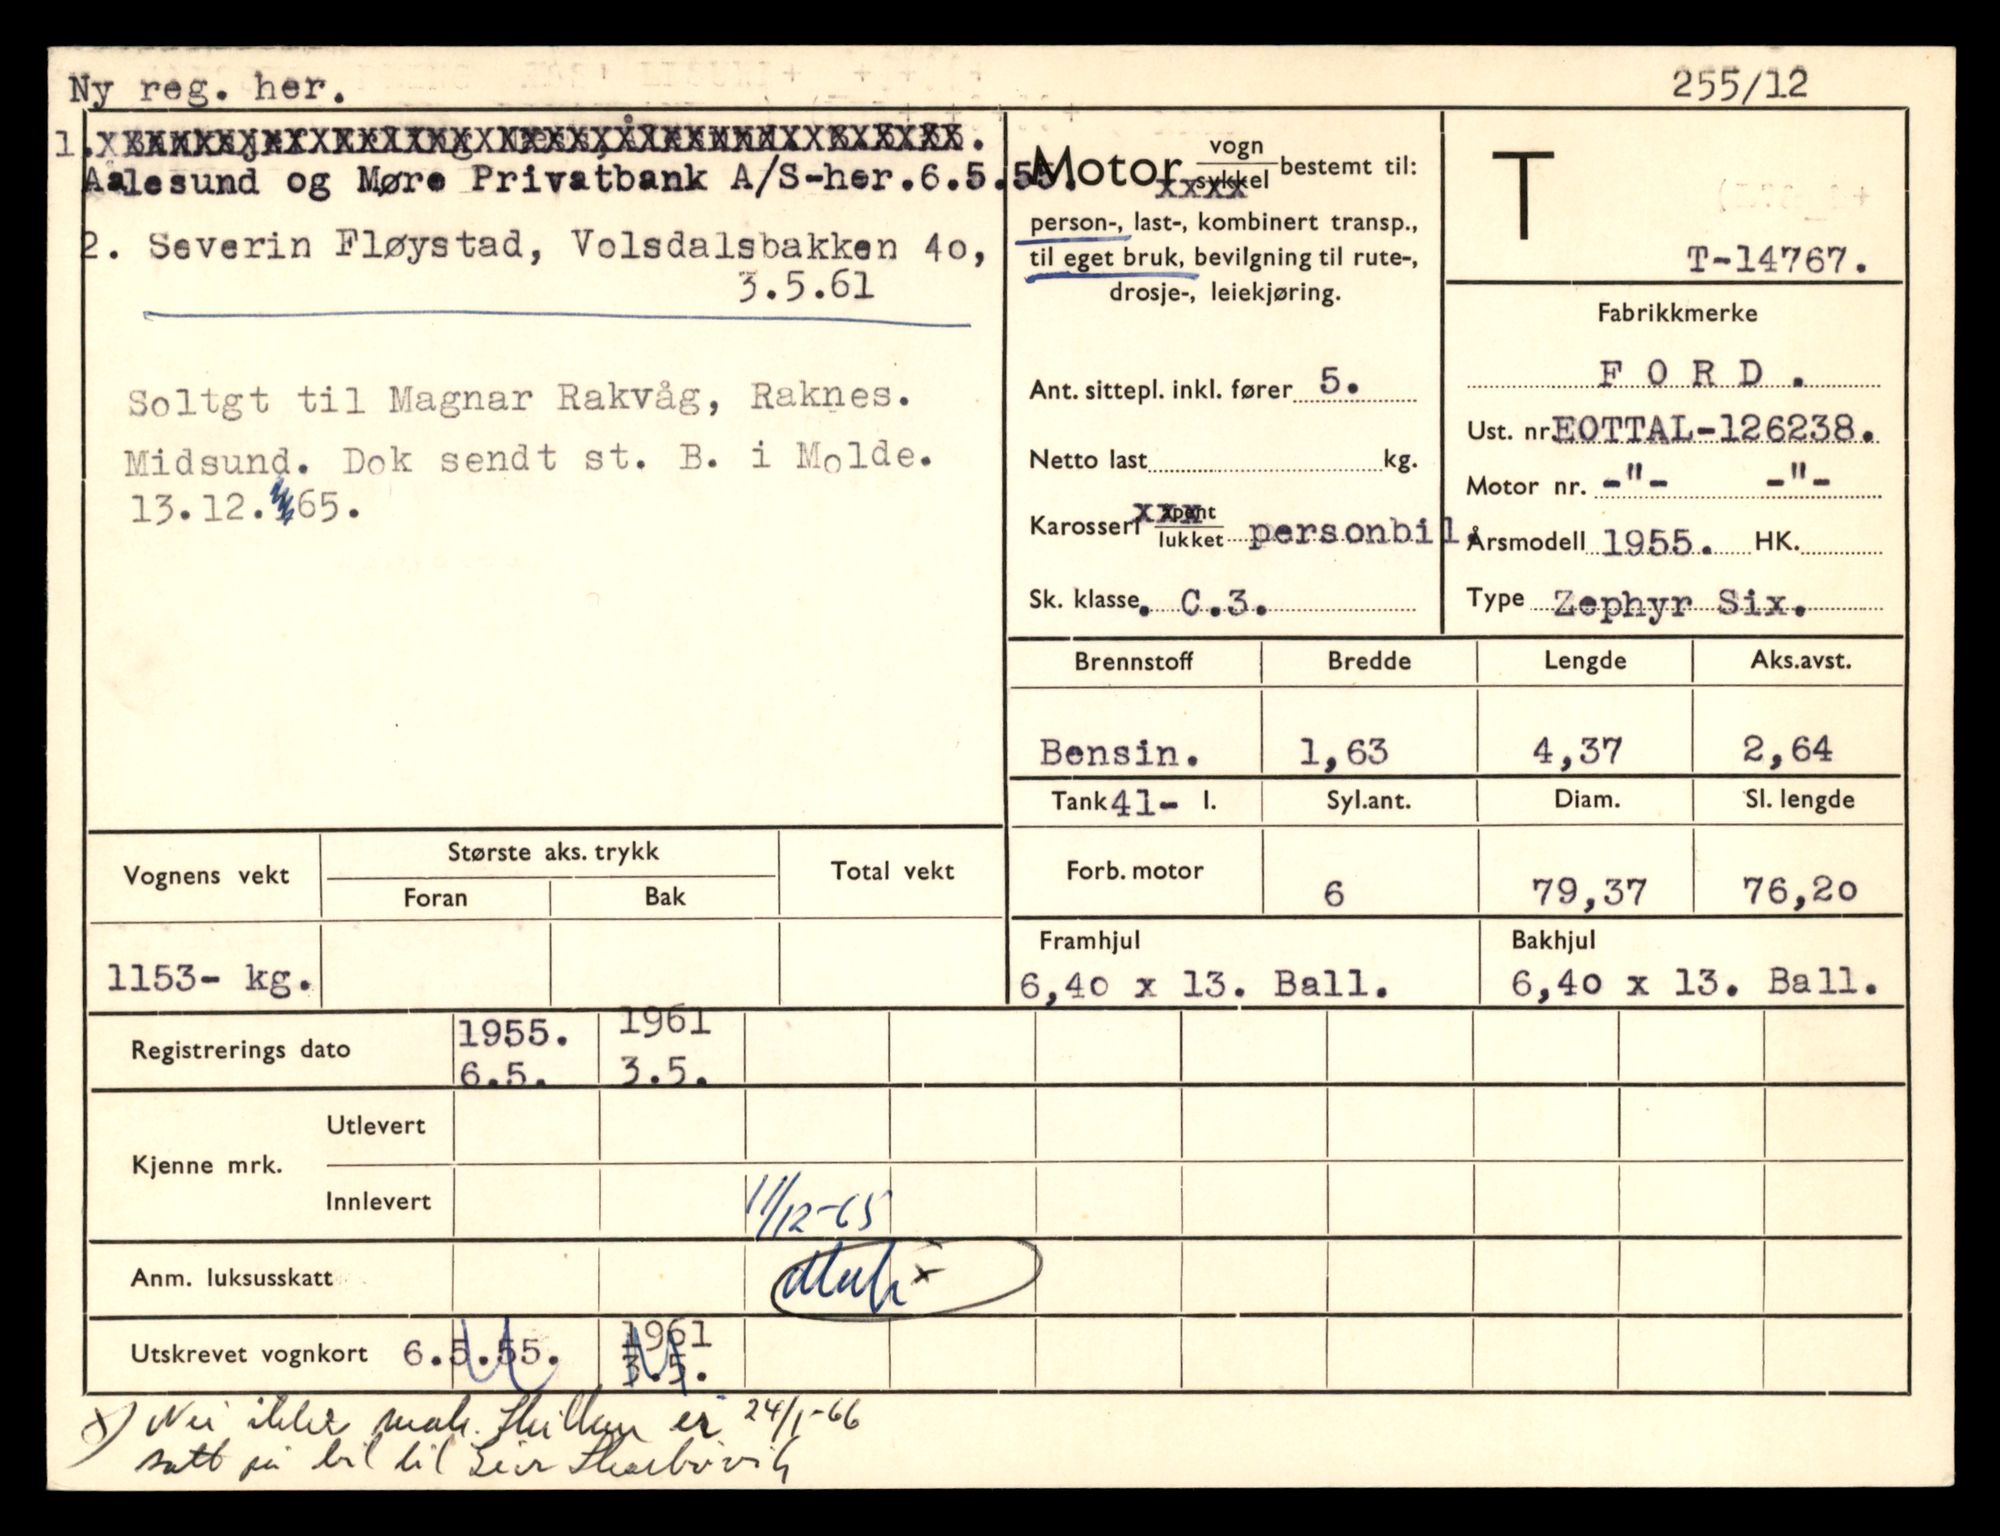 Ny reg. her.
255/12
1.
Aalesund og Møre Privatbank A/S-her.6.5.55.
2. Severin Fløystad, Volsdalsbakken 4o,
3.5.61
Soltgt til Magnar Rakvåg, Raknes.
Midsund. Dok sendt st. B. i Molde.
13.12. 65.
Motor vogn sykkel bestemt til:
xxxx
person-, last-, kombinert transp.,
til eget bruk, bevilgning til rute-,
drosje-, leiekjøring.
Ant. sittepl. inkl. fører 5.
Netto last kg.
Karosseri åpent lukket personbil.
xxx
Sk. klasse. C.3.
T
T-14767.
Fabrikkmerke
F O R D .
Ust. nr. EOTTAL-126238.
Motor nr. -"- -"-
Årsmodell 1955. HK.
Type Zephyr Six.
Brennstoff Bredde Lengde Aks.avst.
Bensin. 1,63 4,37 2,64
Tank 41- l. Syl.ant. Diam. Sl. lengde
Forb. motor 6 79,37 76,2o
Framhjul Bakhjul
6,4o x 13. Ball. 6,4o x 13. Ball.
Vognens vekt Største aks. trykk Total vekt
Foran Bak
1153- kg.
Registrerings dato 1955. 1961
6.5. 3.5.
Kjenne mrk. Utlevert
Innlevert 11/12-65
Anm. luksusskatt x
Utskrevet vognkort 6.5.55. 1961
3.5.
x) Nei ikke mak. Skilten er 24/1-66
satt på bil til